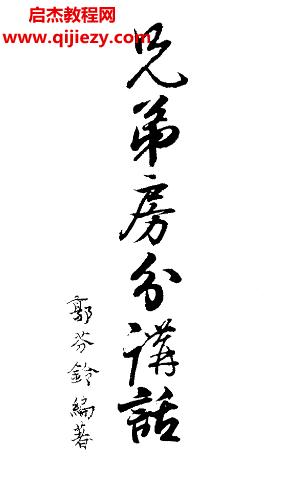 启杰教程网
www.qijiezy.com
兄弟房分講話
郭芬鈴編著